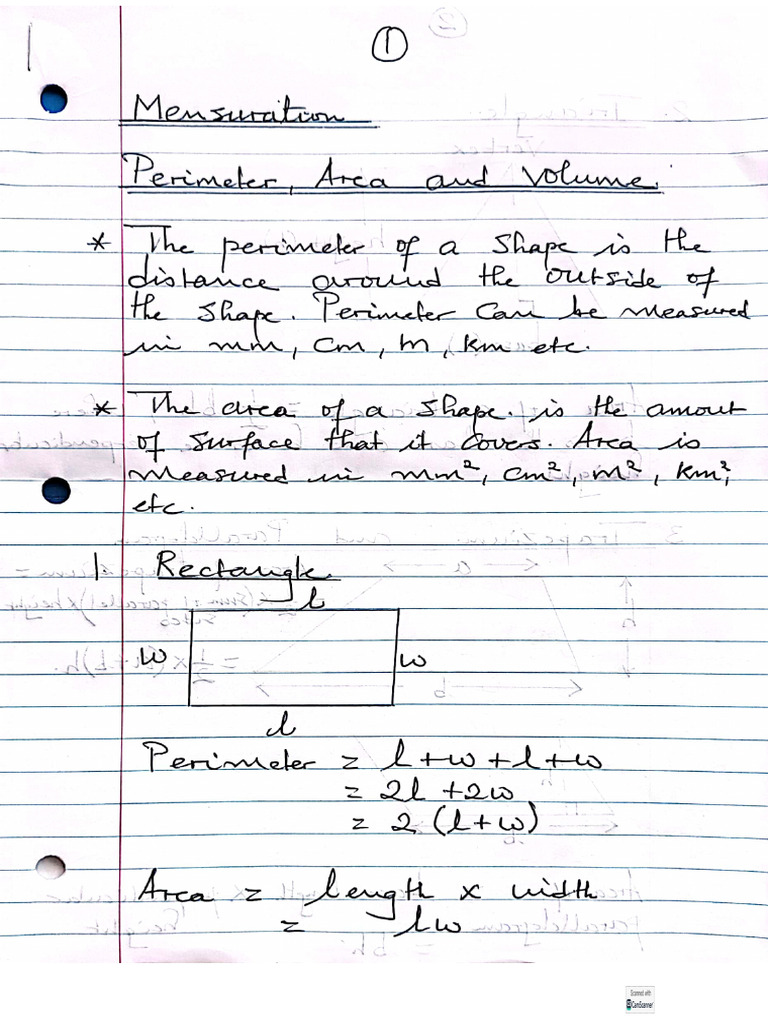 ①
Mensuration
Perimeter, Area and Volume.
* The perimeter of a shape is the
distance around the outside of
the shape. Perimeter can be measured
in mm, cm, m, km etc.
* The area of a shape. is the amout
of surface that it covers. Area is
measured in mm², cm², m², km²,
etc.
1 Rectangle.
l
w w
l
Perimeter = l+w+l+w
= 2l +2w
= 2 (l+w)
Area = length x width
= lw
Scanned with
CamScanner